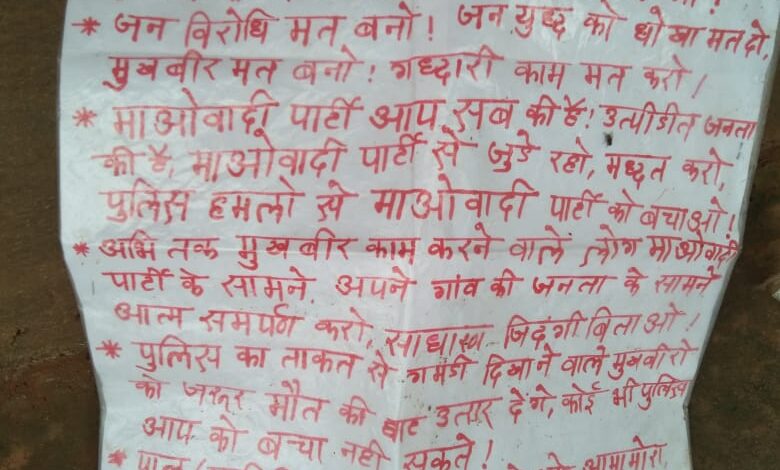 * जन विरोधि मत बनो! जन युद्ध को धोखा मत दो,
मुखबीर मत बनो! गध्दारी काम मत करो।
* माओवादी पार्टी आप सब की है! उत्पीडीत जनता
की है, माओवादी पार्टी से जुडे रहो, मध्दत करो,
पुलिस हमलो से माओवादी पार्टी को बचाओ!
* अभि तक मुखबीर काम करने वाले लोग माओवादी
पार्टी के सामने, अपने गांव की जनता के सामने
आत्म समर्पण करो, साधारण जिदंगी बिताओ!
* पुलिस का ताकत से गमंडी दिखाने वाले मुखबीरो
को जरूर मौत की घाट उतार देंगे, कोई भी पुलिस
आप को बच्चा नही सकते!
आमामोरा